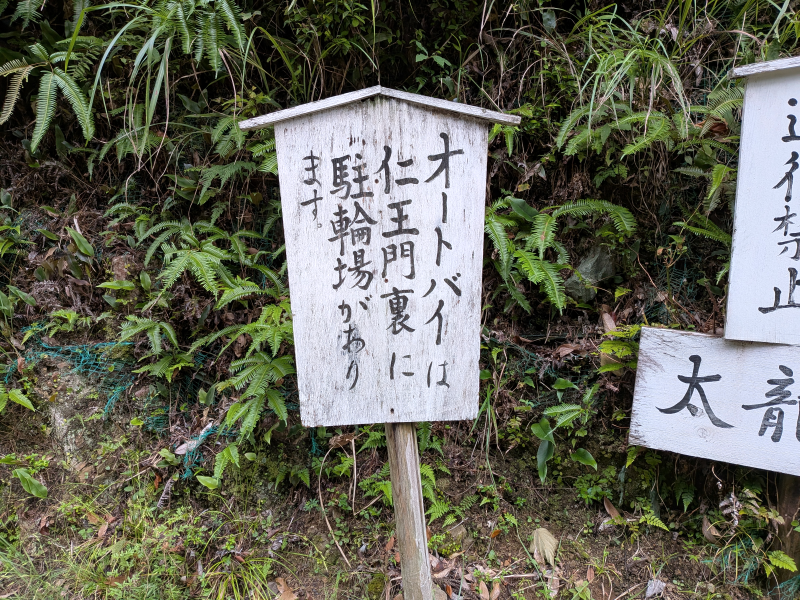 オートバイは
仁王門裏に
駐輪場があり
ます。
行禁止
太龍